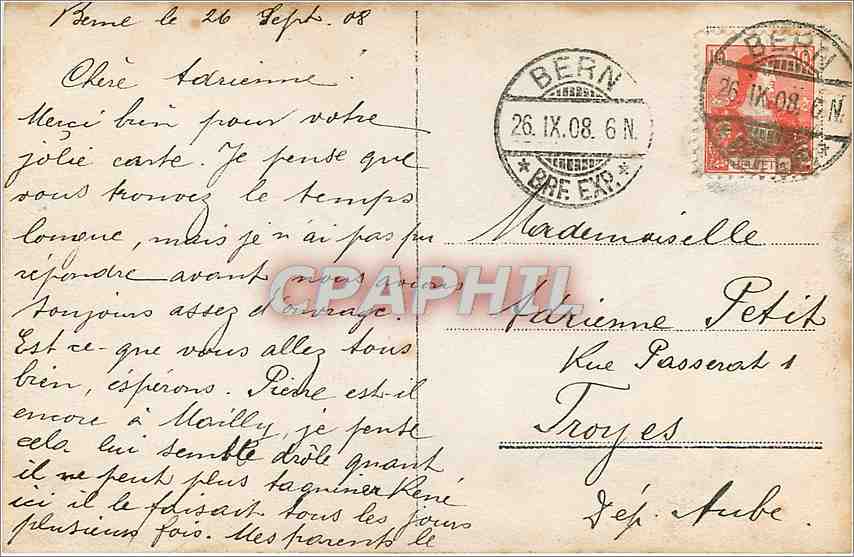 Berne le 26 Sept. 08
Chère Adrienne!
Merci bien pour votre
jolie carte. Je pense que
vous trouvez le temps
longue, mais je n'ai pas pu
répondre avant nous avions
toujours assez d'ouvrage.
Est-ce-que vous allez tous
bien, éspérons. Pierre est-il
encore à Mailly, je pense
cela lui semble drôle quant
il ne peut plus taquiner René
ici il le faisait tous les jours
plusieurs fois. Mes parents le
BERN
26. IX. 08. 6 N.
* BRF. EXP. *
10 10
BERN
26. IX. 08. 6 N.
HELVETIA
Mademoiselle
Adrienne Petit
Rue Passerat 1
Troyes
Dép. Aube.
CPAPHIL